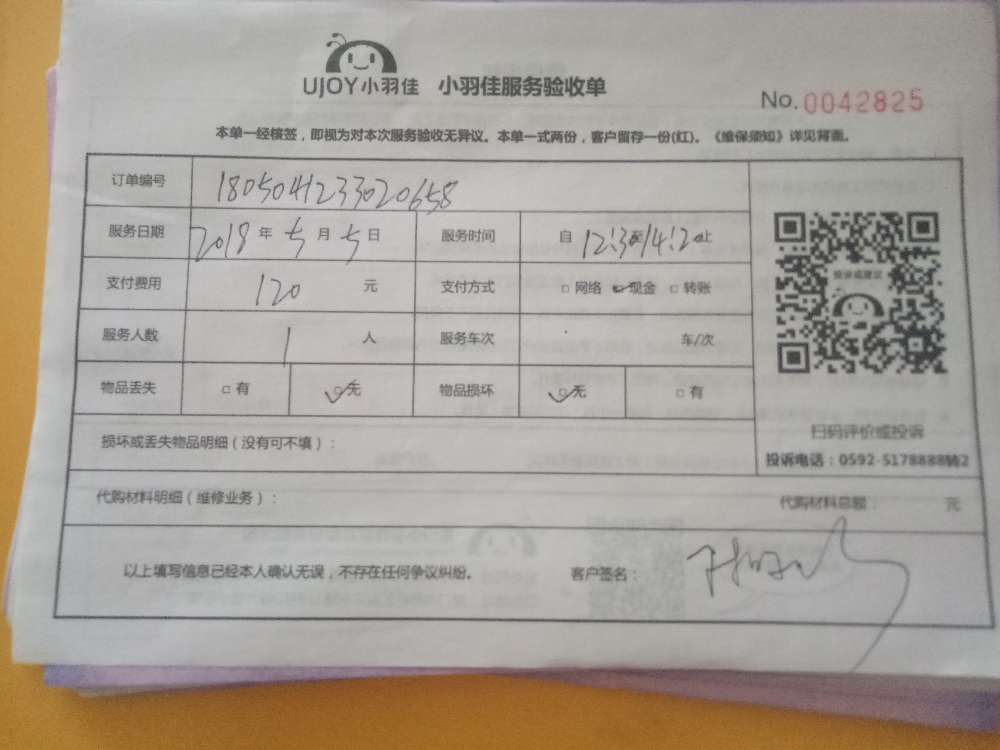 UJOY小羽佳 小羽佳服务验收单
No. 0042825
本单一经核签，即视为对本次服务验收无异议。本单一式两份，客户留存一份(红)。《维保须知》详见背面。
订单编号 180504123302065​8
服务日期 2018 年 5 月 5 日 服务时间 自 12:30至14:20止
支付费用 120 元 支付方式 □网络 □现金 □转账
服务人数 1 人 服务车次 车/次
物品丢失 □有 □无 物品损坏 □无 □有
投诉或建议
扫码评价或投诉
投诉电话：0592-5178888转2
损坏或丢失物品明细（没有可不填）：
代购材料明细（维修业务）： 代购材料总额： 元
以上填写信息已经本人确认无误，不存在任何争议纠纷。 客户签名：